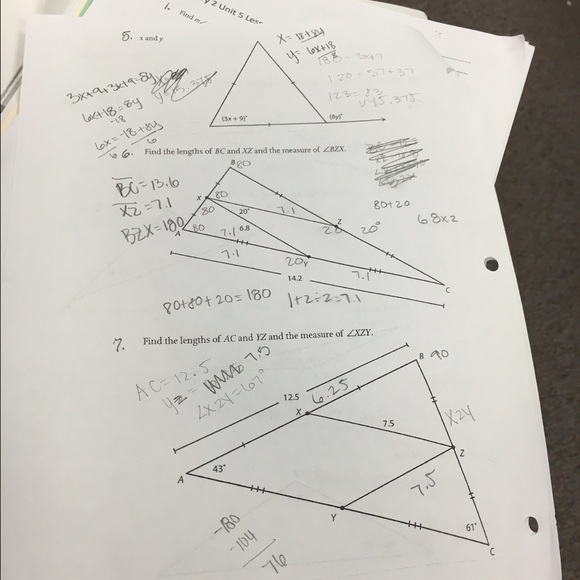 y 2 Unit 5 Less
1. Find m
5. x and y
x = 18+8y
y = 6x+18
3x+9+3x+9=8y
6x+18=8y
-18
6x = -18+8y
6 6
120 = 37+37
123 = 83
y=15.375
(3x + 9)°
(8y)°
6. Find the lengths of BC and XZ and the measure of ∠BZX.
BC = 13.6
XZ = 7.1
BZX = 180
B 80
X 80
80 20° 7.1 Z
A 80 7.1 6.8 20 20°
7.1 20 Y 7.1 C
14.2
80+20
68x2
80+80+20=180
1+2÷2=7.1
7. Find the lengths of AC and YZ and the measure of ∠XZY.
AC = 12.5
YZ = 7.5
∠XZY = 67°
12.5
6.25
B 90
X
7.5
XZY
Z
A 43°
7.5
Y
61°
C
-180
-104
76